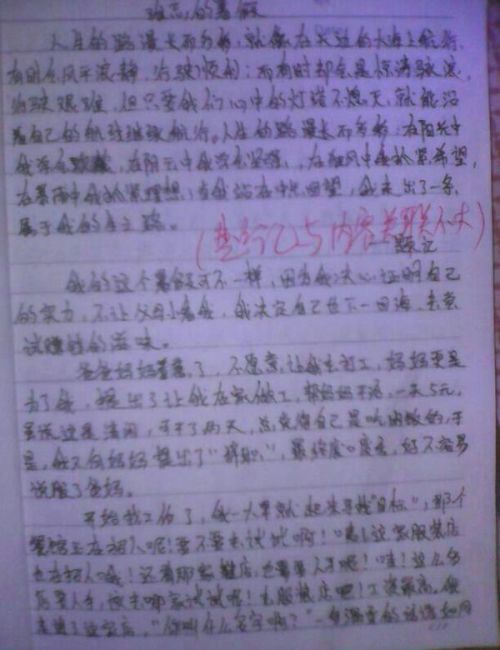 难忘的暑假
人生的路漫长而多彩，就像在天边的大海上航行，
有时会风平浪静，行驶顺利；而有时却会是惊涛骇浪，
行驶艰难，但只要我们心中的灯塔不熄灭，就能沿
着自己的航线继续航行。人生的路漫长而多彩，在阳光中
我学会欢笑，在阴云中我学会坚强，在狂风中我抓紧希望，
在暴雨中我抓紧理想，当我站在中点回望，我走出了一条
属于我的人生路。
(壹与内容关联不大)
题记
我的这个暑假可不一样，因为我决心证明自己
的实力，不让父母小看我，我决定自己也下一回海，去尝
试赚钱的滋味。
爸爸妈妈着急了，不愿意让我去打工，妈妈更是
为了我，提出了让我在家做工，帮妈妈干活，一天5元，
虽说这是清闲，可干了两天，总觉得自己是吃闲饭的，于
是，我又向妈妈提出了“辞职”，最终废口，好不容易
说服了爸妈。
开始找工作了，我一大早就起来寻找“目标”，那个
宾馆正在招人呢！要不要去试试啊！嘿！这家服装店
也在招人哦！还有那家鞋店，也需要人手呢！哇！这么多
店要人手，该去哪家试试呢！去服装店吧！工资最高，我
走进了这家店，“你叫什么名字啊？”一句温柔的话语如同